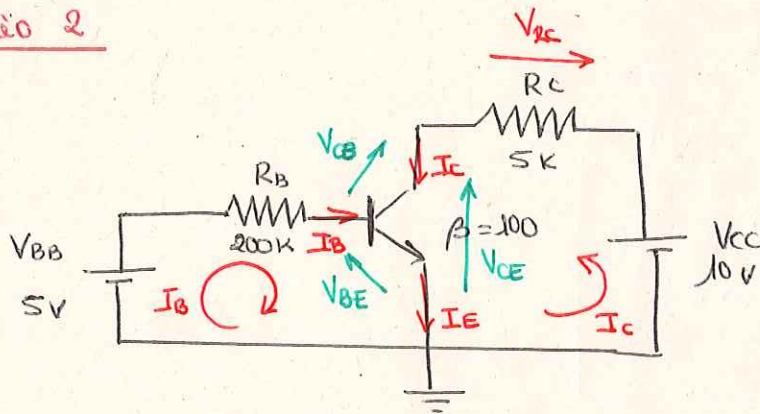 2
VRC
RC
5K
VCB
IC
RB
200K
IB
β=100
VCE
VBB
5V
IB
VBE
IE
IC
VCC
10V